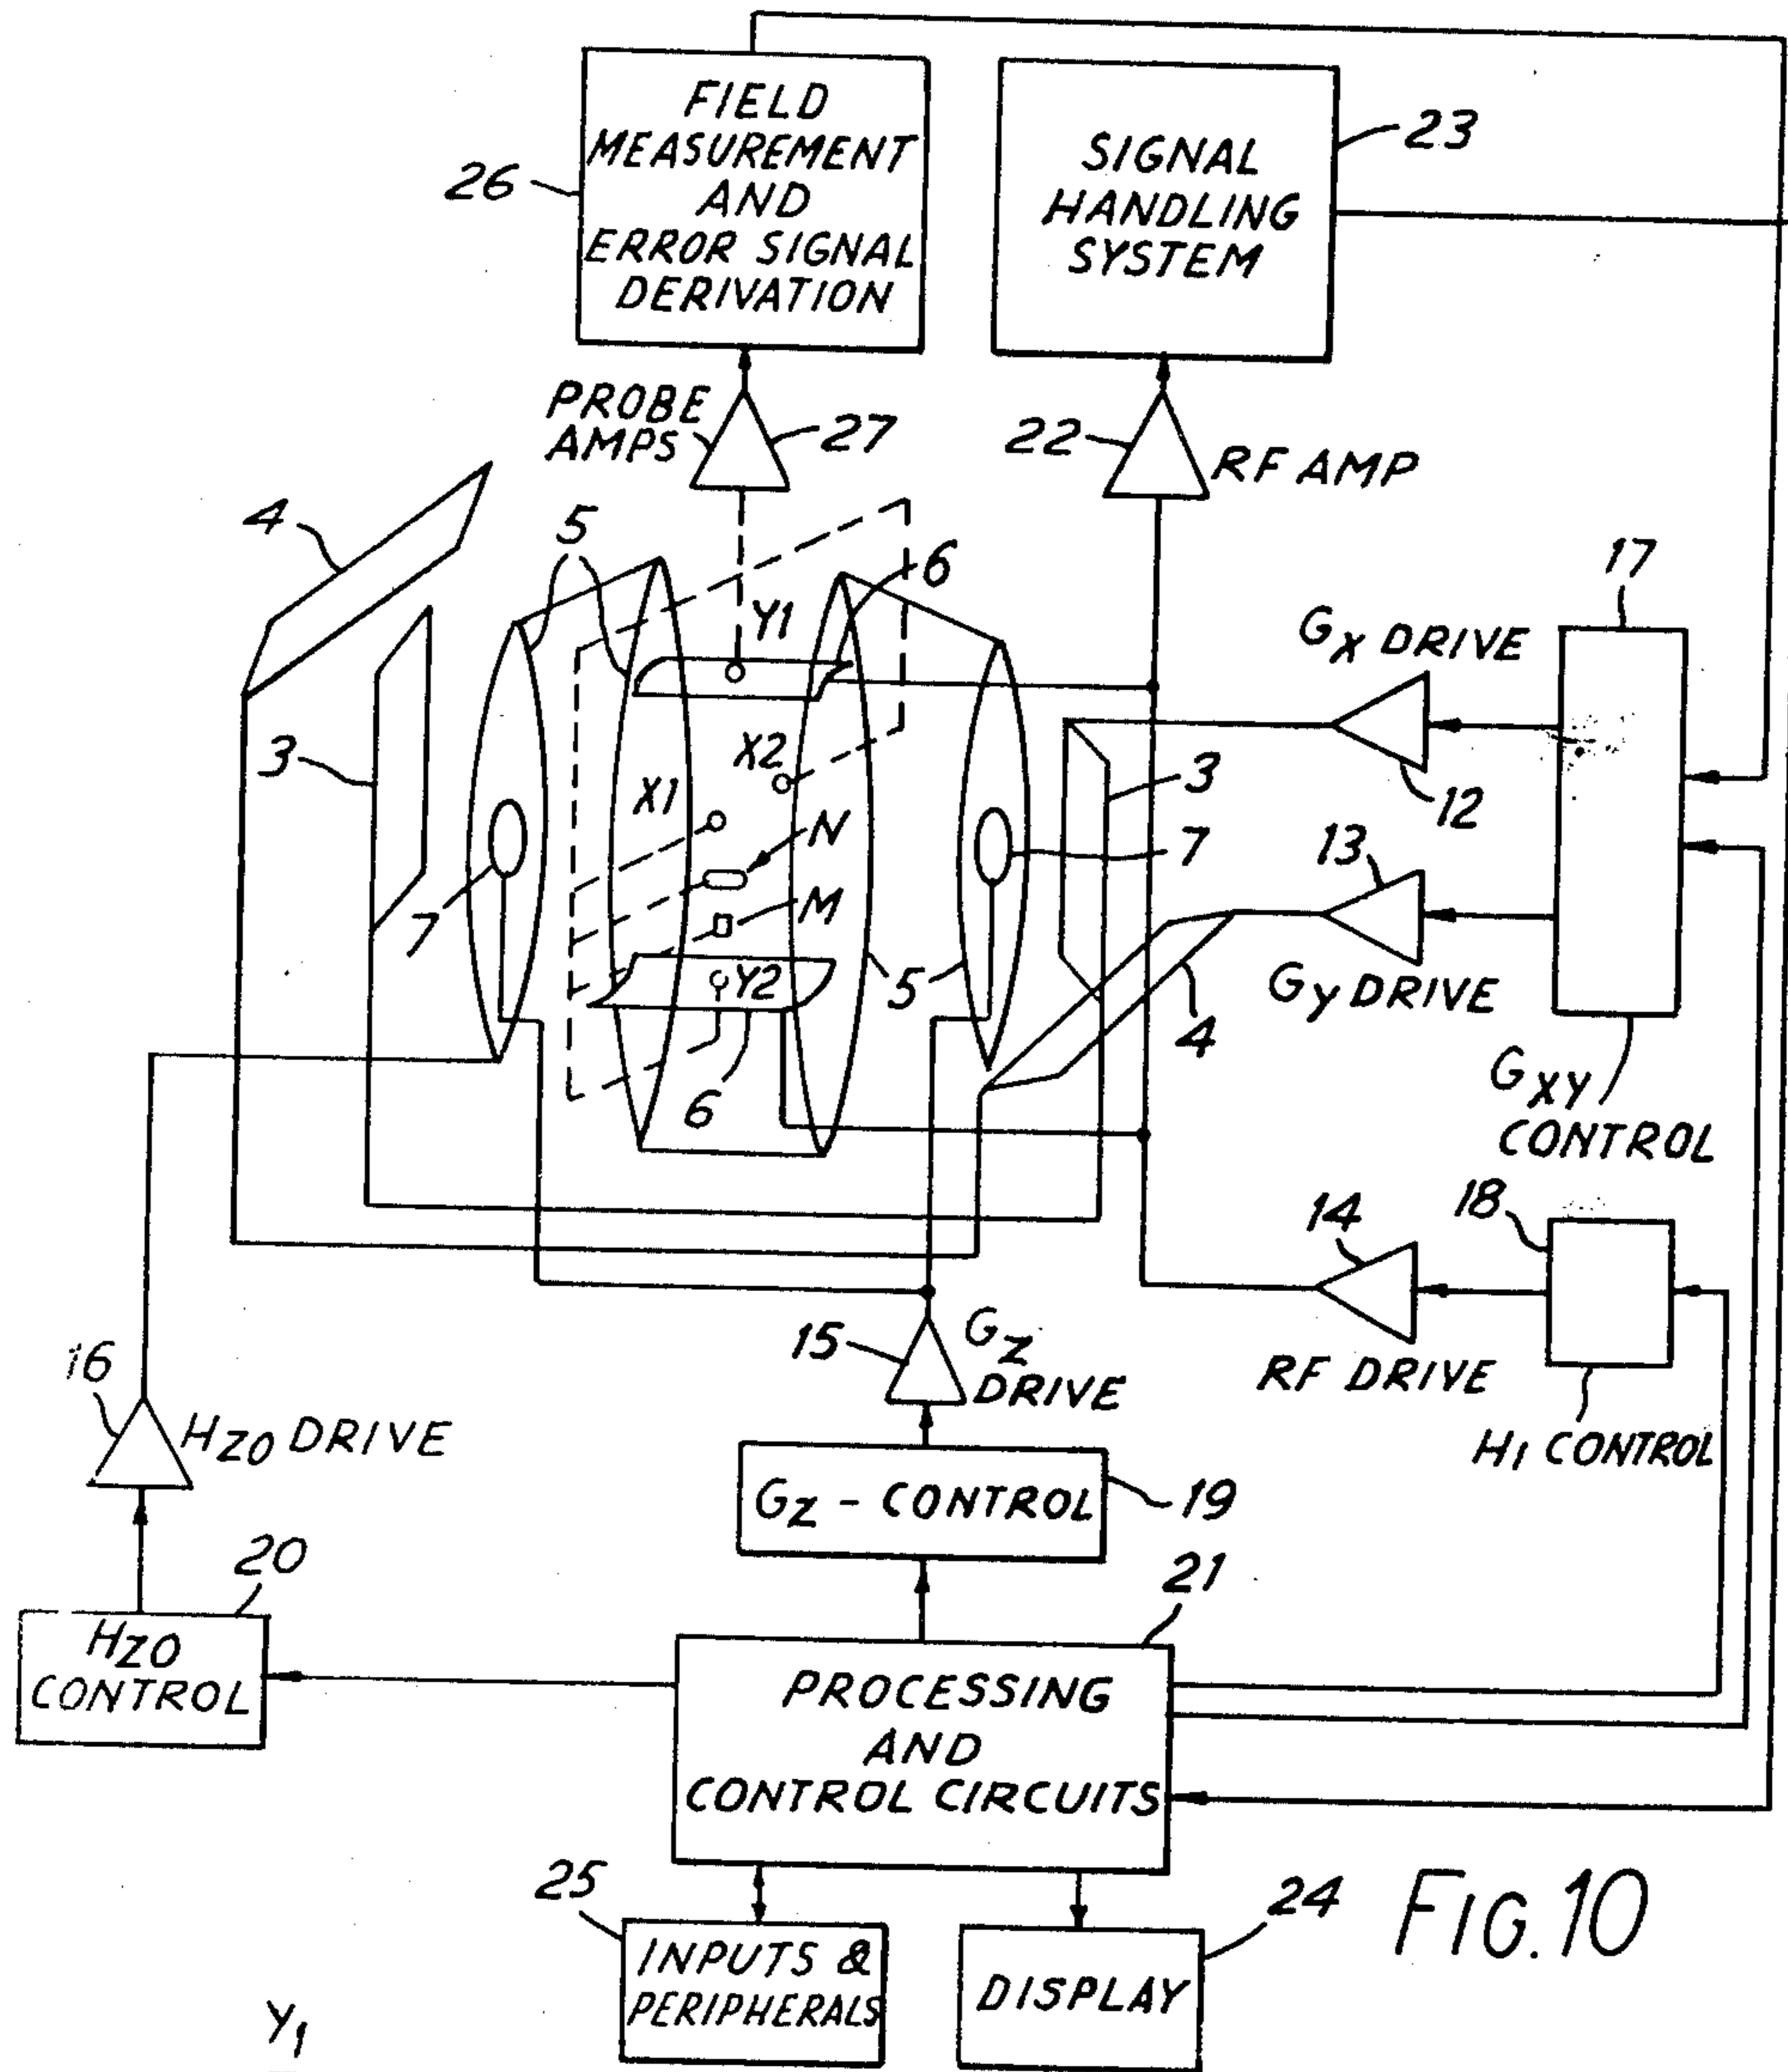 FIELD
MEASUREMENT
AND
ERROR SIGNAL
DERIVATION
26
SIGNAL
HANDLING
SYSTEM
23
PROBE
AMPS
27
22
RF AMP
4
5
6
17
Y1
GX DRIVE
3
X2
X1
N
M
3
12
7
7
13
Y2
5
GY DRIVE
4
6
GXY
CONTROL
14
18
16
15
GZ
DRIVE
RF DRIVE
HZO DRIVE
H1 CONTROL
GZ - CONTROL
19
20
21
HZO
CONTROL
PROCESSING
AND
CONTROL CIRCUITS
25
24
INPUTS &
PERIPHERALS
DISPLAY
FIG. 10
Y1